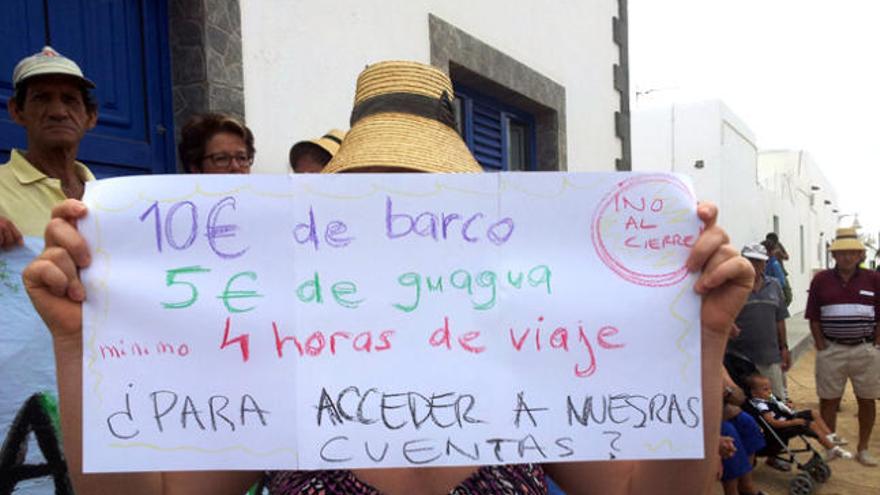 10€ de barco
5€ de guagua
minimo 4 horas de viaje
¿PARA ACCEDER A NUESRAS
CUENTAS?
¡NO
AL
CIERRE!